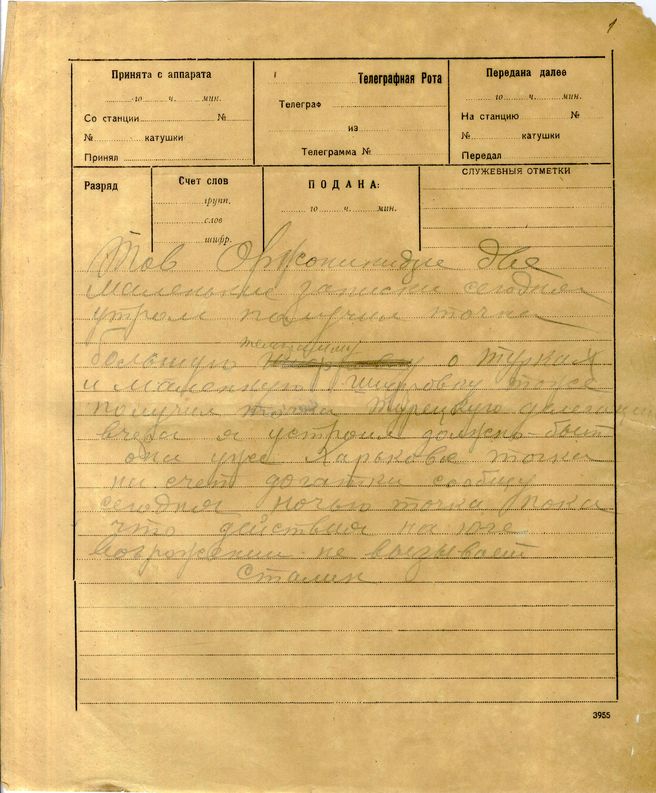 1
Принята с аппарата
го ч. мин.
Со станции № 
№ катушки
Принял
Телеграфная Рота
Телеграф
из
Телеграмма №
Передана далее
го ч. мин.
На станцию №
№ катушки
Передал
Разряд
Счет слов
групп.
слов
шифр.
ПОДАНА:
го ч. мин.
СЛУЖЕБНЫЯ ОТМЕТКИ
Тов Оржоникидзе две
маленькие записки сегодня
утром получил точка
телеграмму
большую о турках
и маленкую шифровку тоже
получил точка Турецкую делегацию
вчера я устроил должно быть
она уже Харькове точка
на счет догатки сообщу
сегодня ночью точка пока
что действия на юге
возрожении не вызывает
Сталин
3955